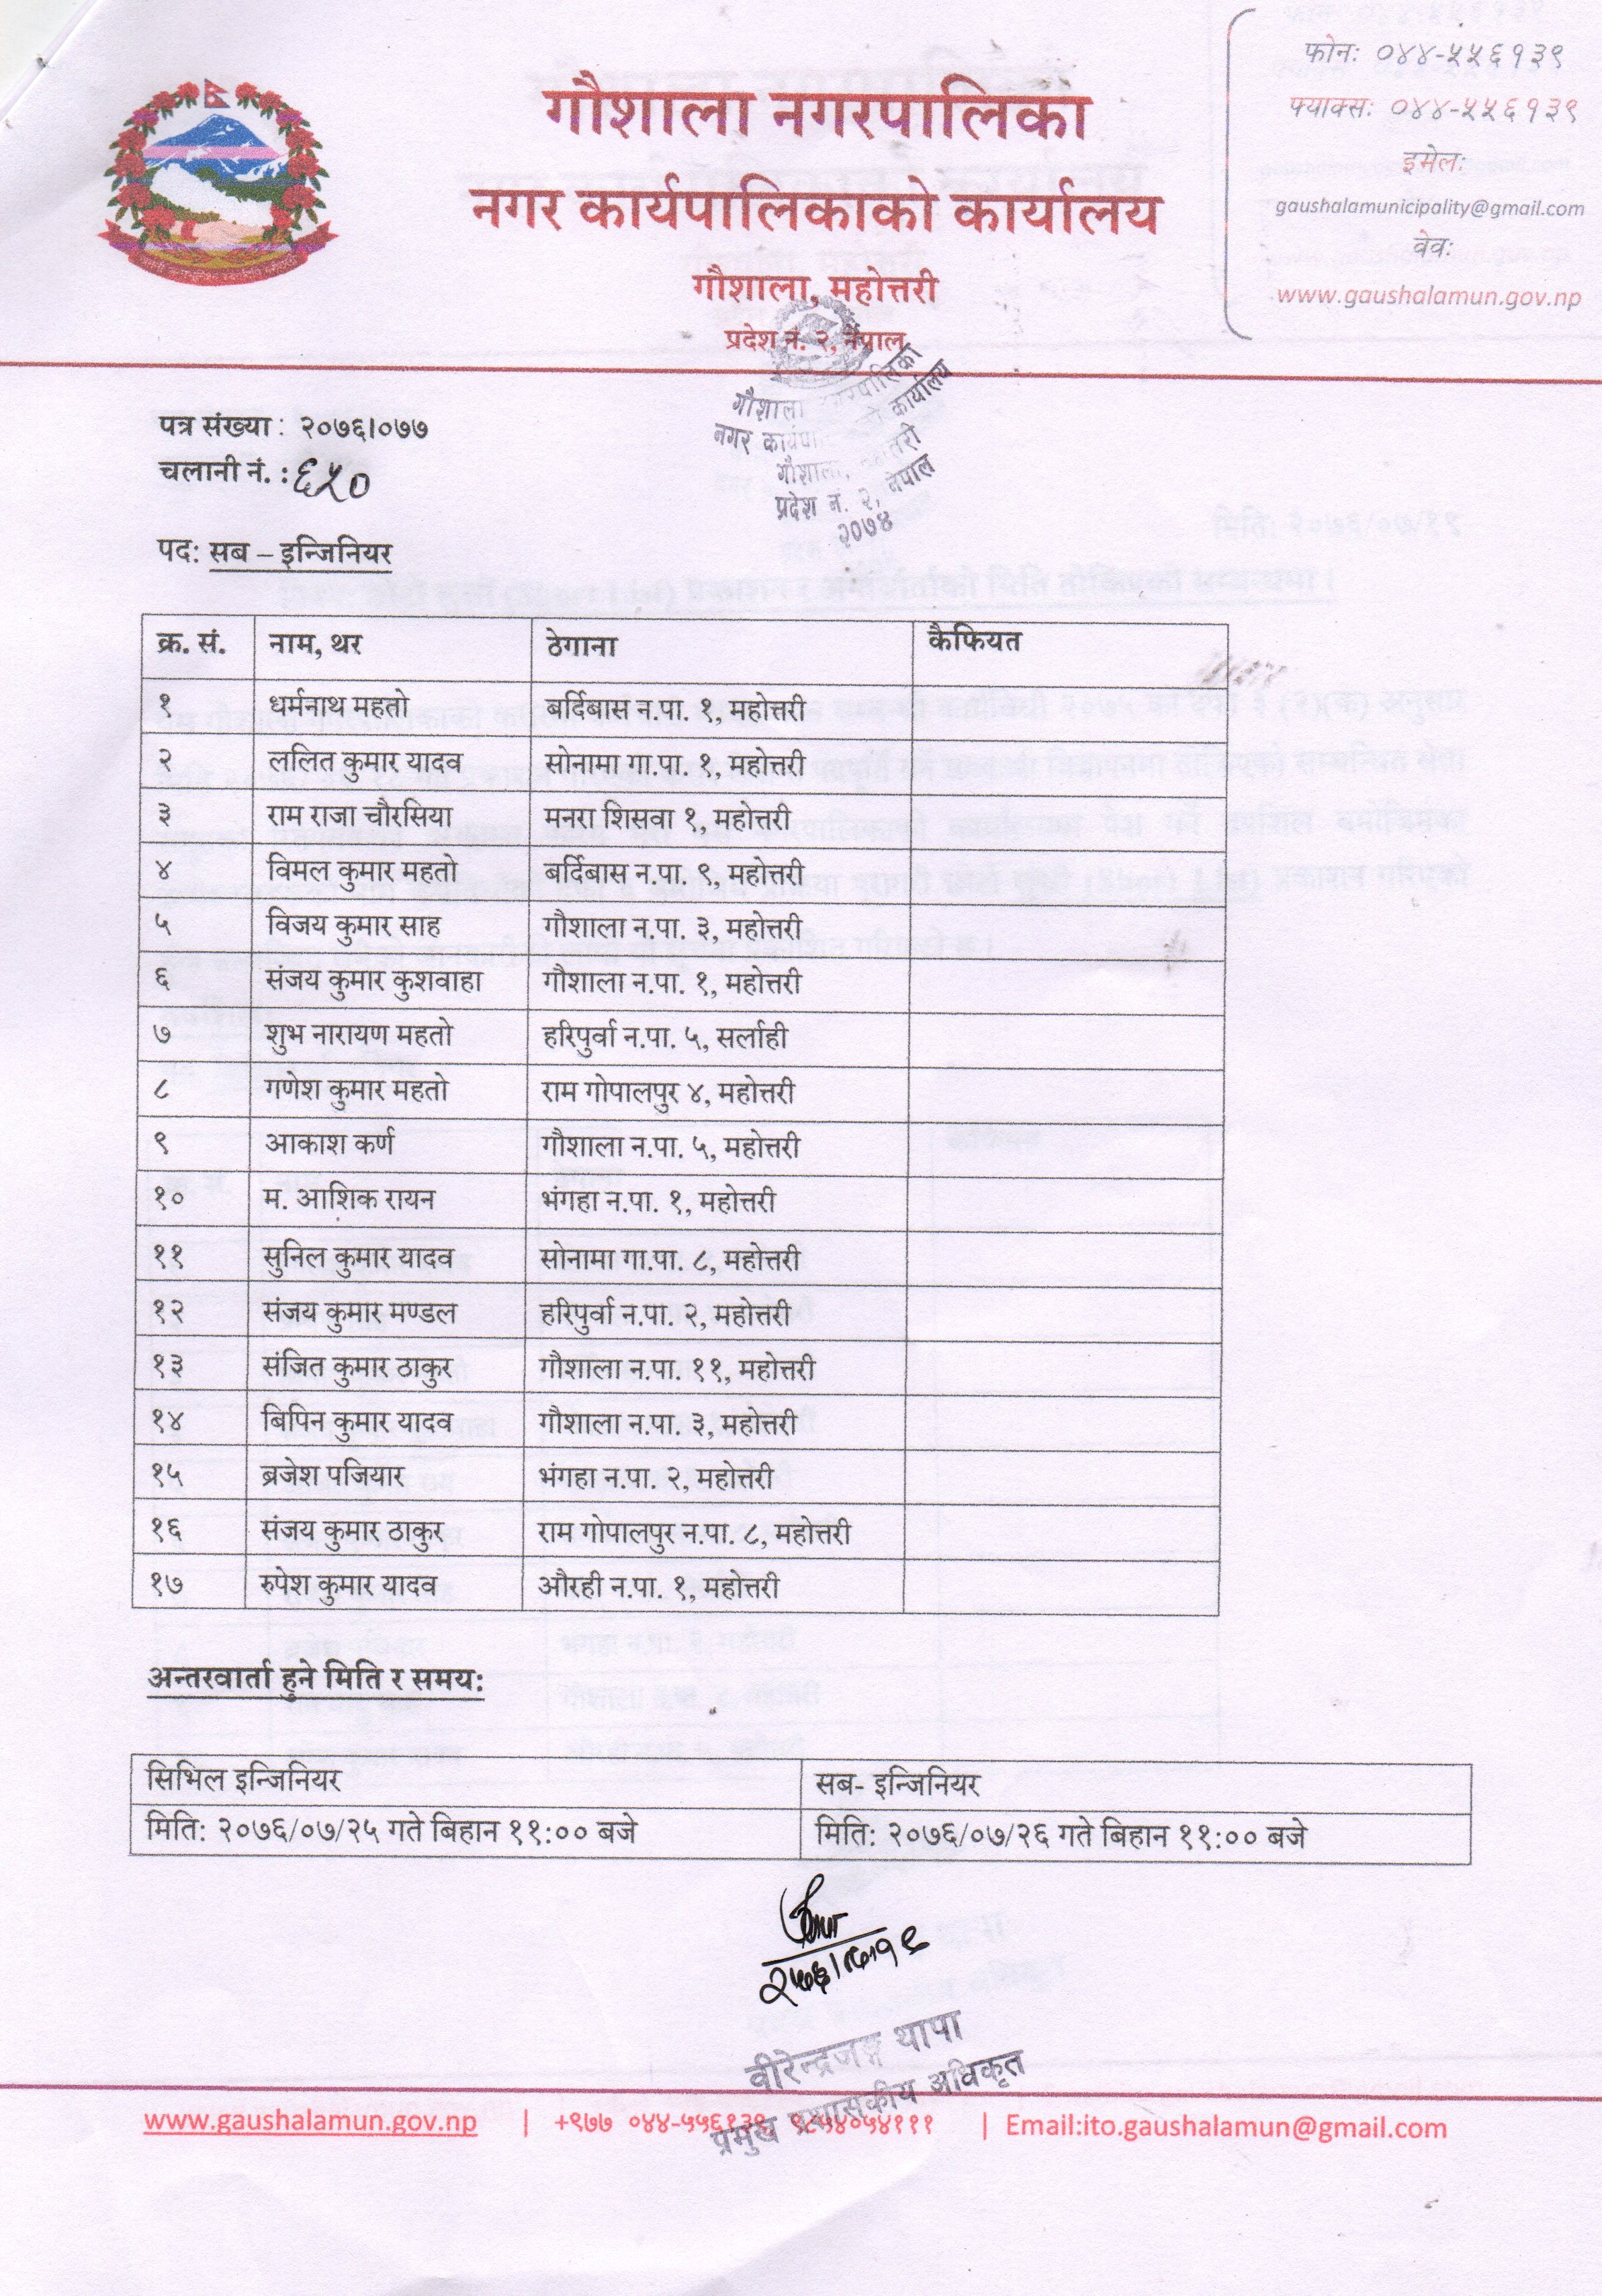 फोन: ०४४-५५६१३९
फ्याक्स: ०४४-५५६१३९
इमेल:
gaushalamunicipality@gmail.com
वेव:
www.gaushalamun.gov.np
गौशाला नगरपालिका
नगर कार्यपालिकाको कार्यालय
गौशाला, महोत्तरी
प्रदेश नं. २, नेपाल
गौशाला नगरपालिका
नगर कार्यपालिकाको कार्यालय
गौशाला, महोत्तरी
प्रदेश नं. २, नेपाल
२०७४
पत्र संख्या : २०७६।०७७
चलानी नं. : ६५०
पद: सब – इन्जिनियर
क्र. सं. नाम, थर ठेगाना कैफियत
१ धर्मनाथ महतो बर्दिबास न.पा. १, महोत्तरी
२ ललित कुमार यादव सोनामा गा.पा. १, महोत्तरी
३ राम राजा चौरसिया मनरा शिसवा १, महोत्तरी
४ विमल कुमार महतो बर्दिबास न.पा. ९, महोत्तरी
५ विजय कुमार साह गौशाला न.पा. ३, महोत्तरी
६ संजय कुमार कुशवाहा गौशाला न.पा. १, महोत्तरी
७ शुभ नारायण महतो हरिपुर्वा न.पा. ५, सर्लाही
८ गणेश कुमार महतो राम गोपालपुर ४, महोत्तरी
९ आकाश कर्ण गौशाला न.पा. ५, महोत्तरी
१० म. आशिक रायन भंगहा न.पा. १, महोत्तरी
११ सुनिल कुमार यादव सोनामा गा.पा. ८, महोत्तरी
१२ संजय कुमार मण्डल हरिपुर्वा न.पा. २, महोत्तरी
१३ संजित कुमार ठाकुर गौशाला न.पा. ११, महोत्तरी
१४ बिपिन कुमार यादव गौशाला न.पा. ३, महोत्तरी
१५ ब्रजेश पजियार भंगहा न.पा. २, महोत्तरी
१६ संजय कुमार ठाकुर राम गोपालपुर न.पा. ८, महोत्तरी
१७ रुपेश कुमार यादव औरही न.पा. १, महोत्तरी
अन्तरवार्ता हुने मिति र समय:
सिभिल इन्जिनियर सब- इन्जिनियर
मिति: २०७६/०७/२५ गते बिहान ११:०० बजे मिति: २०७६/०७/२६ गते बिहान ११:०० बजे
वीरेन्द्रजङ्ग थापा
प्रमुख प्रशासकीय अधिकृत
www.gaushalamun.gov.np | +९७७ ०४४-५५६१३९, ९८५४०५४१११ | Email:ito.gaushalamun@gmail.com